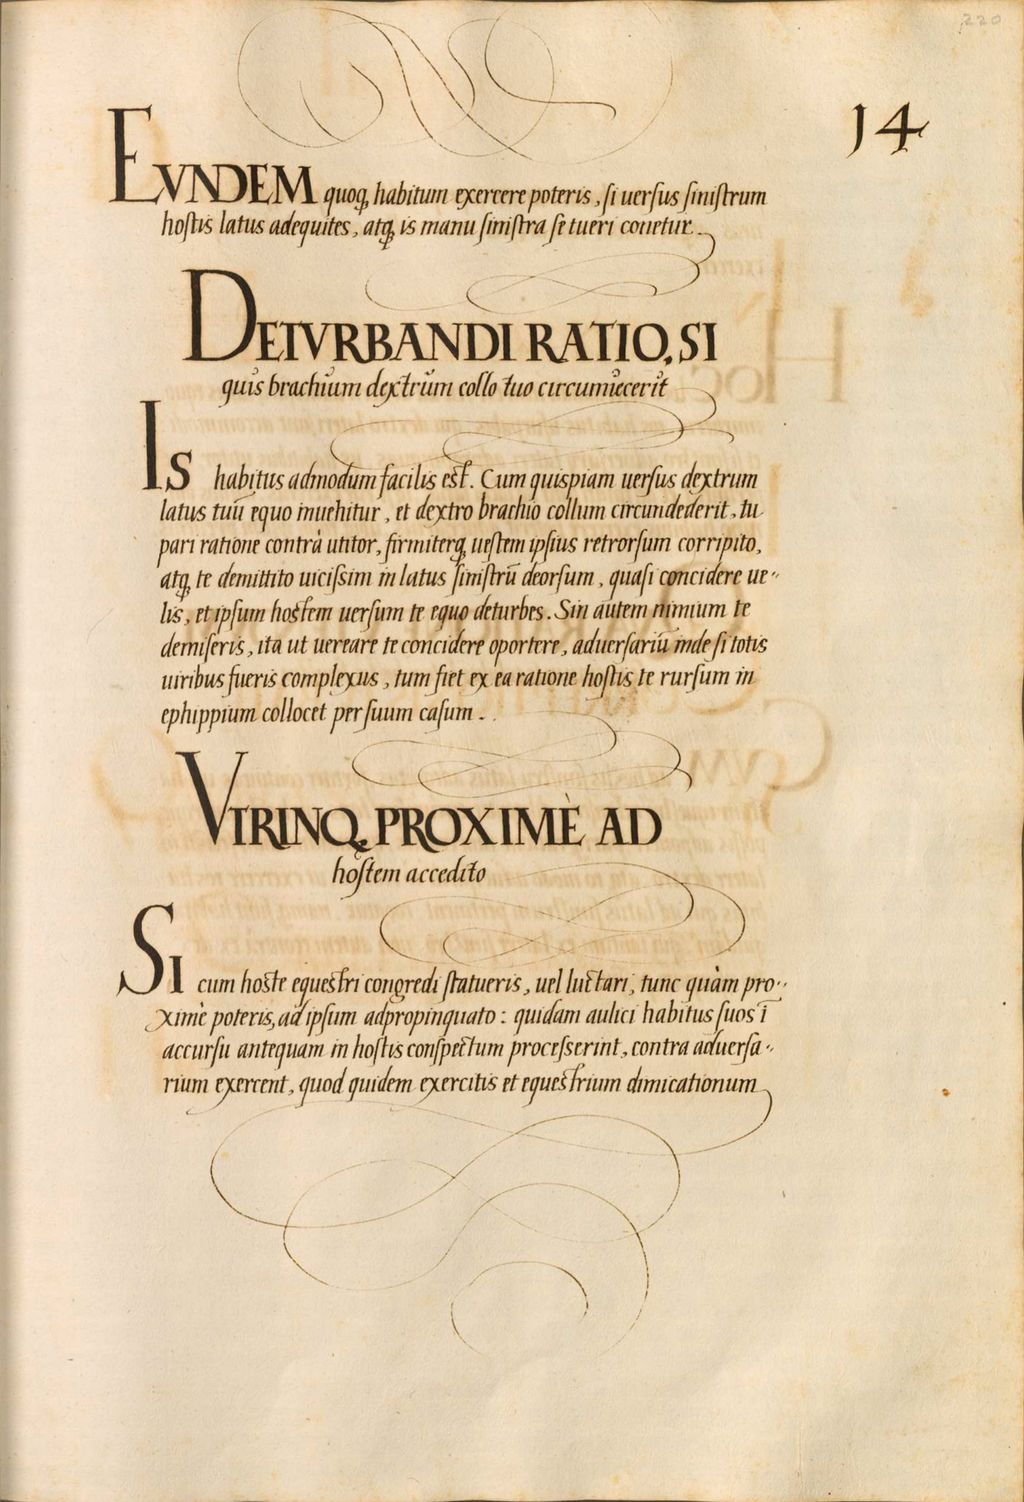 220
14
EVNDEM quoq, habitum exercere poteris, si uersus sinistrum
hostis latus adequites, atq, is manu sinistra se tueri conetur.
DETVRBANDI RATIO, SI
quis brachium dextrum collo tuo circumiecerit
IS habitus admodum facilis est. Cum quispiam uersus dextrum
latus tuū equo inuehitur, et dextro brachio collum circundederit, tu
pari ratione contrà utitor, firmiterq, uestem ipsius retrorsum corripito,
atq, te demittito uicissim in latus sinistrū deorsum, quasi concidere ue-
lis, et ipsum hostem uersum te equo deturbes. Sin autem nimium te
demiseris, ita ut uereare te concidere oportere, aduersariū inde si totis
uiribus fueris complexus, tum fiet ex ea ratione hostis te rursum in
ephippium collocet per suum casum.
VTRINQ, PROXIMÈ AD
hostem accedito
SI cum hoste equestri congredi statueris, uel luctari, tunc quàm pro-
ximè poteris, ad ipsum adpropinquato: quidam aulici habitus suos ī
accursu antequam in hostis conspectum processerint, contra aduersa-
rium exercent, quod quidem exercitis et equestrium dimicationum